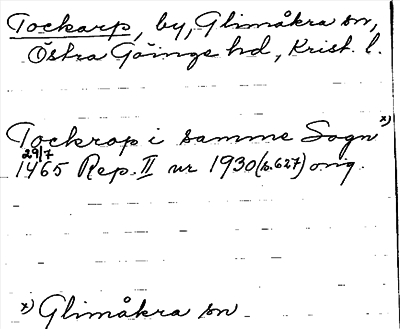 Tockarp, by, Glimåkra sn,
Östra Göinge hd, Krist. l.
Tockrop i samme Sogn x)
29/7
1465 Rep. II nr 1930 (s. 627) orig.
x) Glimåkra sn